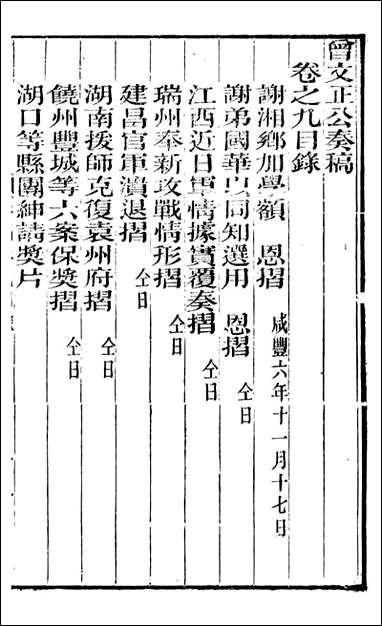 曾文正公奏稿
卷之九目錄
謝湘鄉加學額　恩摺　咸豐六年十一月十七日
謝弟國華以同知選用　恩摺　仝日
江西近日軍情據實覆奏摺　仝日
瑞州奉新攻戰情形摺　仝日
建昌官軍潰退摺　仝日
湖南援師克復袁州府摺　仝日
饒州豐城等六案保獎摺　仝日
湖口等縣團紳請獎片